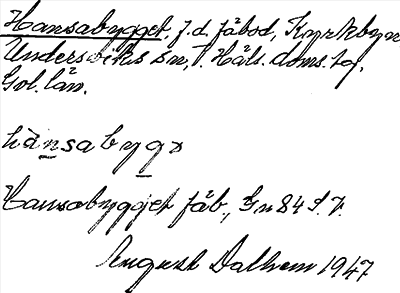 Hansabygget, f.d. fäbod, Kyrkbyn
Undersviks sn, V. Häls. doms. tg,
Gvl. län.
hànsabygə
Hansabygget fäb., Gn 84 S.V.
August Dalhem 1947